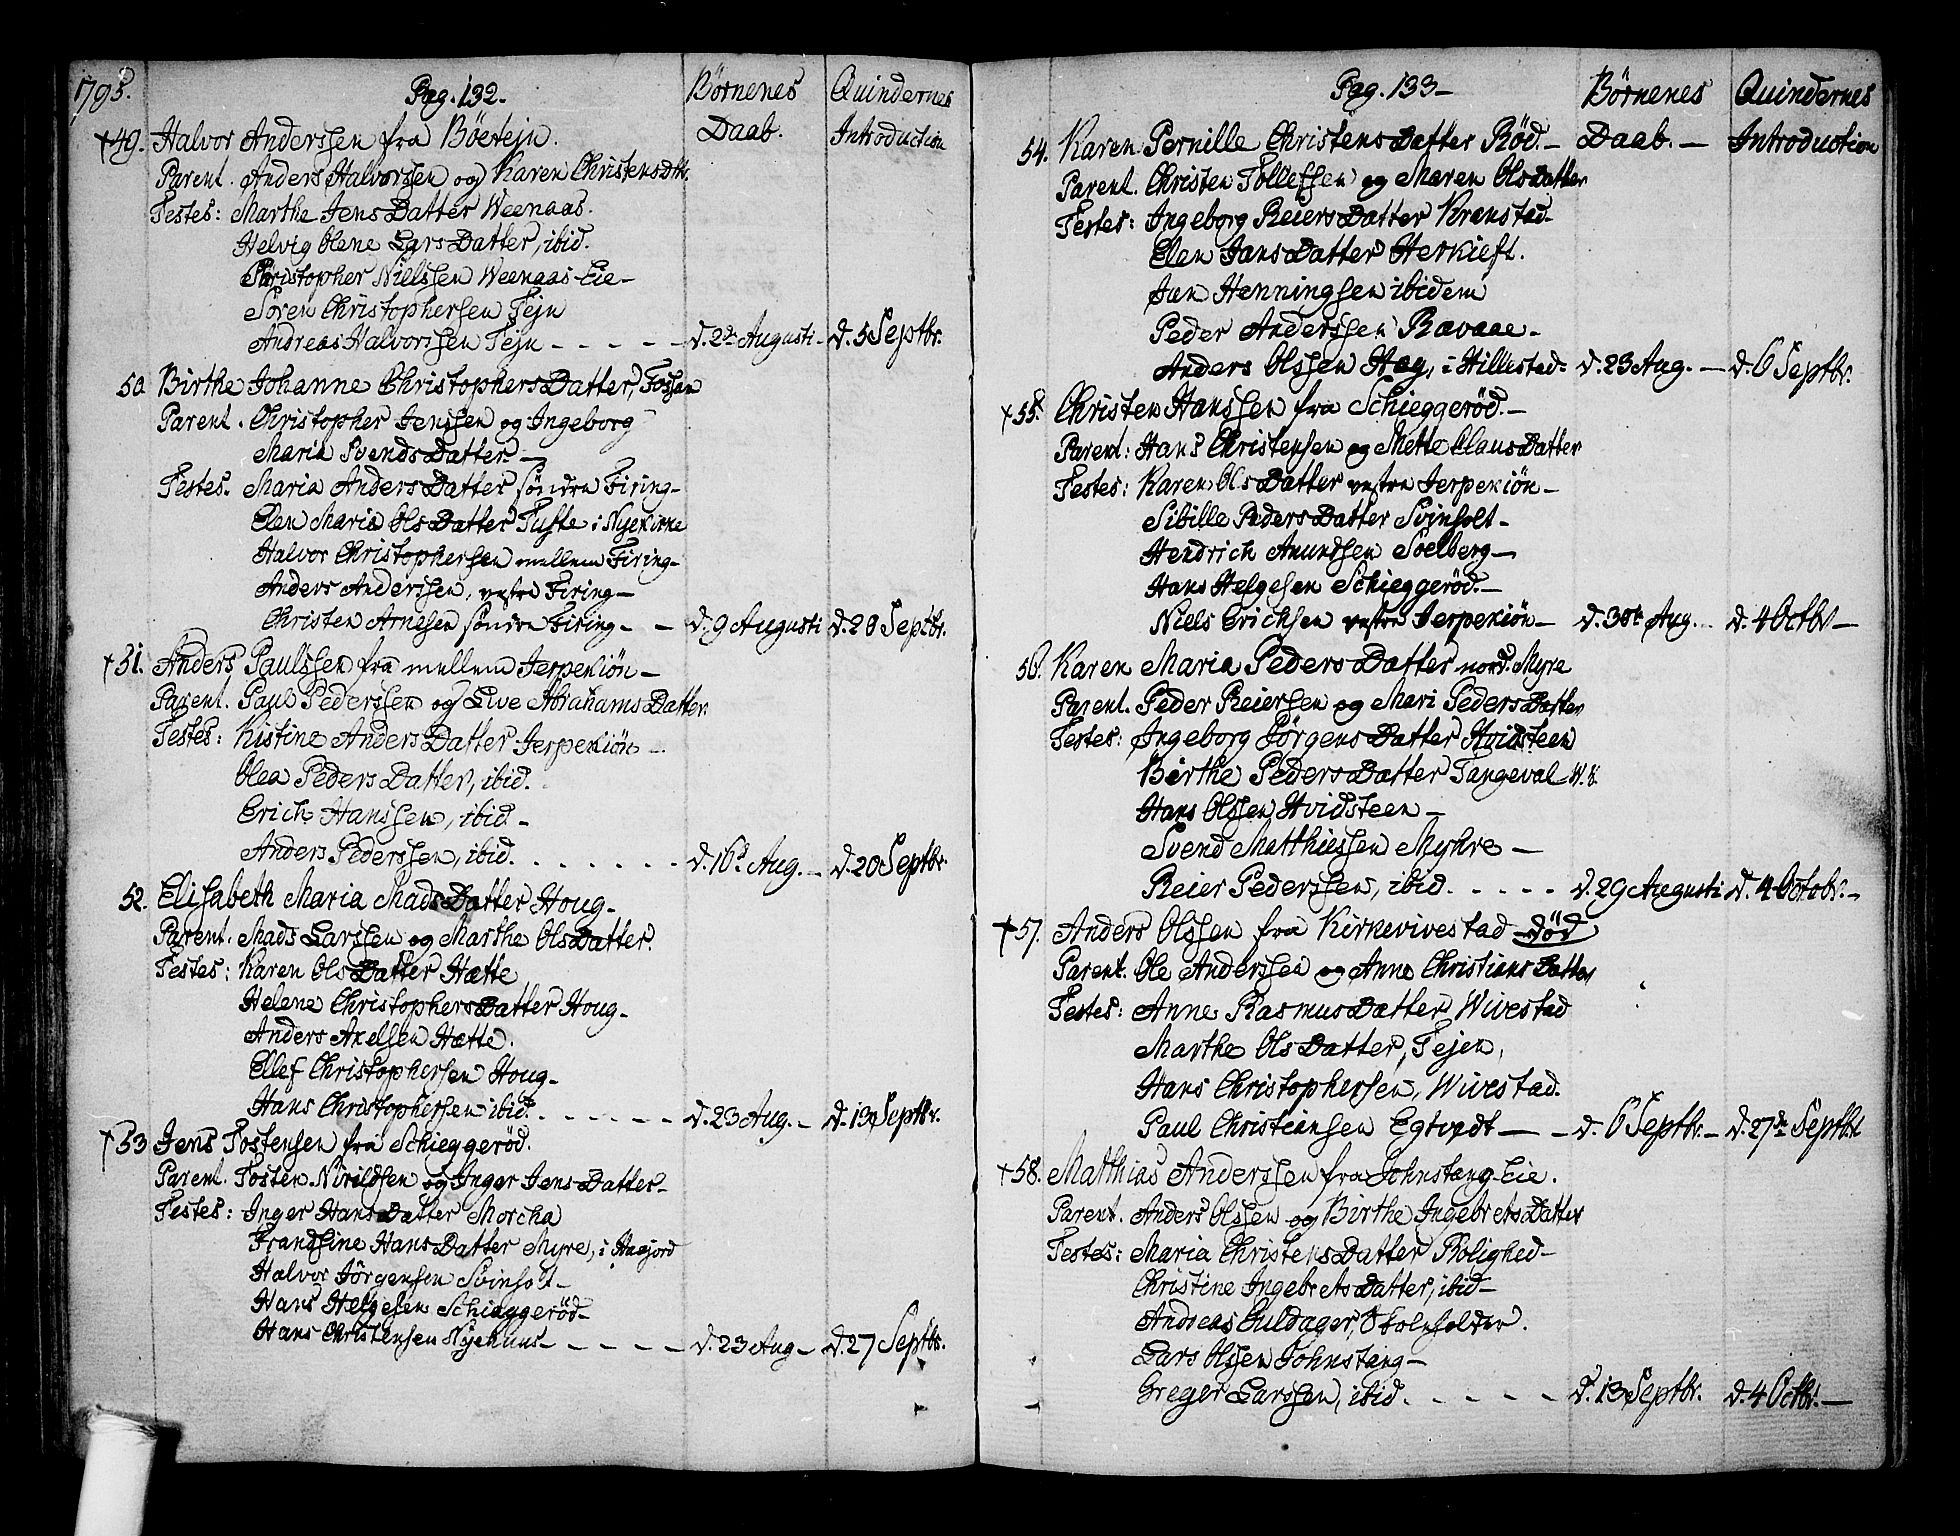 1795.
Pag. 132.
Börnenes Daab.
Quindernes Introduction
+49. Halvor Anderssen fra Böetejn.
Parent. Anders Halvorssen og Karen Christensdtr.
Testes: Marthe JensDatter Weenaas.
Helvig Olene LarsDatter, ibid.
Christopher Nielssen Weenaas-Eie-
Sören Christophersen Tejn
Andreas Halvorssen Tejn - - - - - d. 2de Augusti- d. 5 Septbr.
50. Birthe Johanne ChristophersDatter, Fossan
Parent. Christopher Jenssen og Ingeborg
Maria SvendsDatter. -
Testes. Maria AndersDatter söndre Firing-
Elen Maria OlsDatter Tufte i Nyekirke
Halvor Christophersen mellem Firing-
Anders Anderssen, vestre Firing-
Christen Arnesen söndre Firing- - d. 9 Augusti d. 20 Septbr.
+51. Anders Paulssen fra mellem Jerpekiön-
Parent. Paul Pederssen og Live AbrahamsDatter.
Testes: Kistine AndersDatter Jerpekiön-
Olea PedersDatter, ibid.
Erich Hanssen, ibid-
Anders Pederssen, ibid. . . . . . . - d. 16d Aug. - d. 20 Septbr.
52. Elisabeth Maria MadsDatter Houg-
Parent. Mads Larssen og Marthe OlsDatter.
Testes: Karen OlsDatter Hætte
Helene ChristophersDatter Houg-
Anders Axelsen Hætte.
Ellef Christophersen Houg-
Hans Christophersen ibid. - - - - - d. 23 Aug. - d. 13 Septbr.
+53 Jens Tostensen fra Schieggeröd.
Parent. Tosten Nirildsen og Inger JensDatter-
Testes: Inger HansDatter Morcha
Frandsine HansDatter Myre, i
Halvor Jörgensen Svinholt-
Hans Helgesen Schieggeröd-
Hans Christensen Nyehuus- - - - - - d. 23 Aug- d. 27 Septbr.
Pag. 133-
Börnenes Daab. -
Quindernes Introduction
54. Karen Pernille ChristensDatter Röd. -
Parent. Christen Tollefsen og Maren OlsDatter
Testes: Ingeborg ReiersDatter Kranstad-
Elen JansDatter Herkieft.
Jan Henningsen ibidem
Peder Anderssen Ravaae-
Anders Olssen Hag, i Hillestad- d. 23 Aug. - d. 6 Septbr.
+55. Christen Hanssen fra Schieggeröd. -
Parent: Hans Christensen og Mette ClausDatter
Testes: Karen OlsDatter vestre Jerpekiön-
Sibille PedersDatter Svinholt-
Hendrich Amundsen Soelberg-
Hans Helgesen Schieggeröd. -
Niels Erichsen vestre Jerpekiön- d. 30te Aug. - d. 4 Octbr-
56. Karen Maria PedersDatter nord. Myre
Parent. Peder Reiersen og Mari PedersDatter
Testes: Ingeborg JörgensDatter Hvidsteen
Birthe PedersDatter Tangeval-
Hans Olssen Hvidsteen-
Svend Matthiessen Myhre-
Reier Pederssen, ibid. - - - - d. 29 Augusti d. 4 Octobr.-
+57. Anders Olssen fra Kirkevivestad död
Parent. Ole Anderssen og Anne ChristiansDatter
Testes: Anne RasmusDatter Wivestad
Marthe OlsDatter, Tejen,
Hans Christophersen, Wivestad.
Paul Christiansen Egtvedt- - d. 6 Septbr. - d. 27de Septbr.
+58. Matthias Anderssen fra Johnstang-Eie.
Parent. Anders Olssen og Birthe IngebretsDatter
Testes: Maria ChristensDatter Rolighed-
Christine IngebretsDatter, ibid-
Andreas Guldager, Skoleholder.
Lars Olssen Johnstang-
Greger Larssen, ibid. - - - - d. 13 Septbr. d. 4 Octbr. -